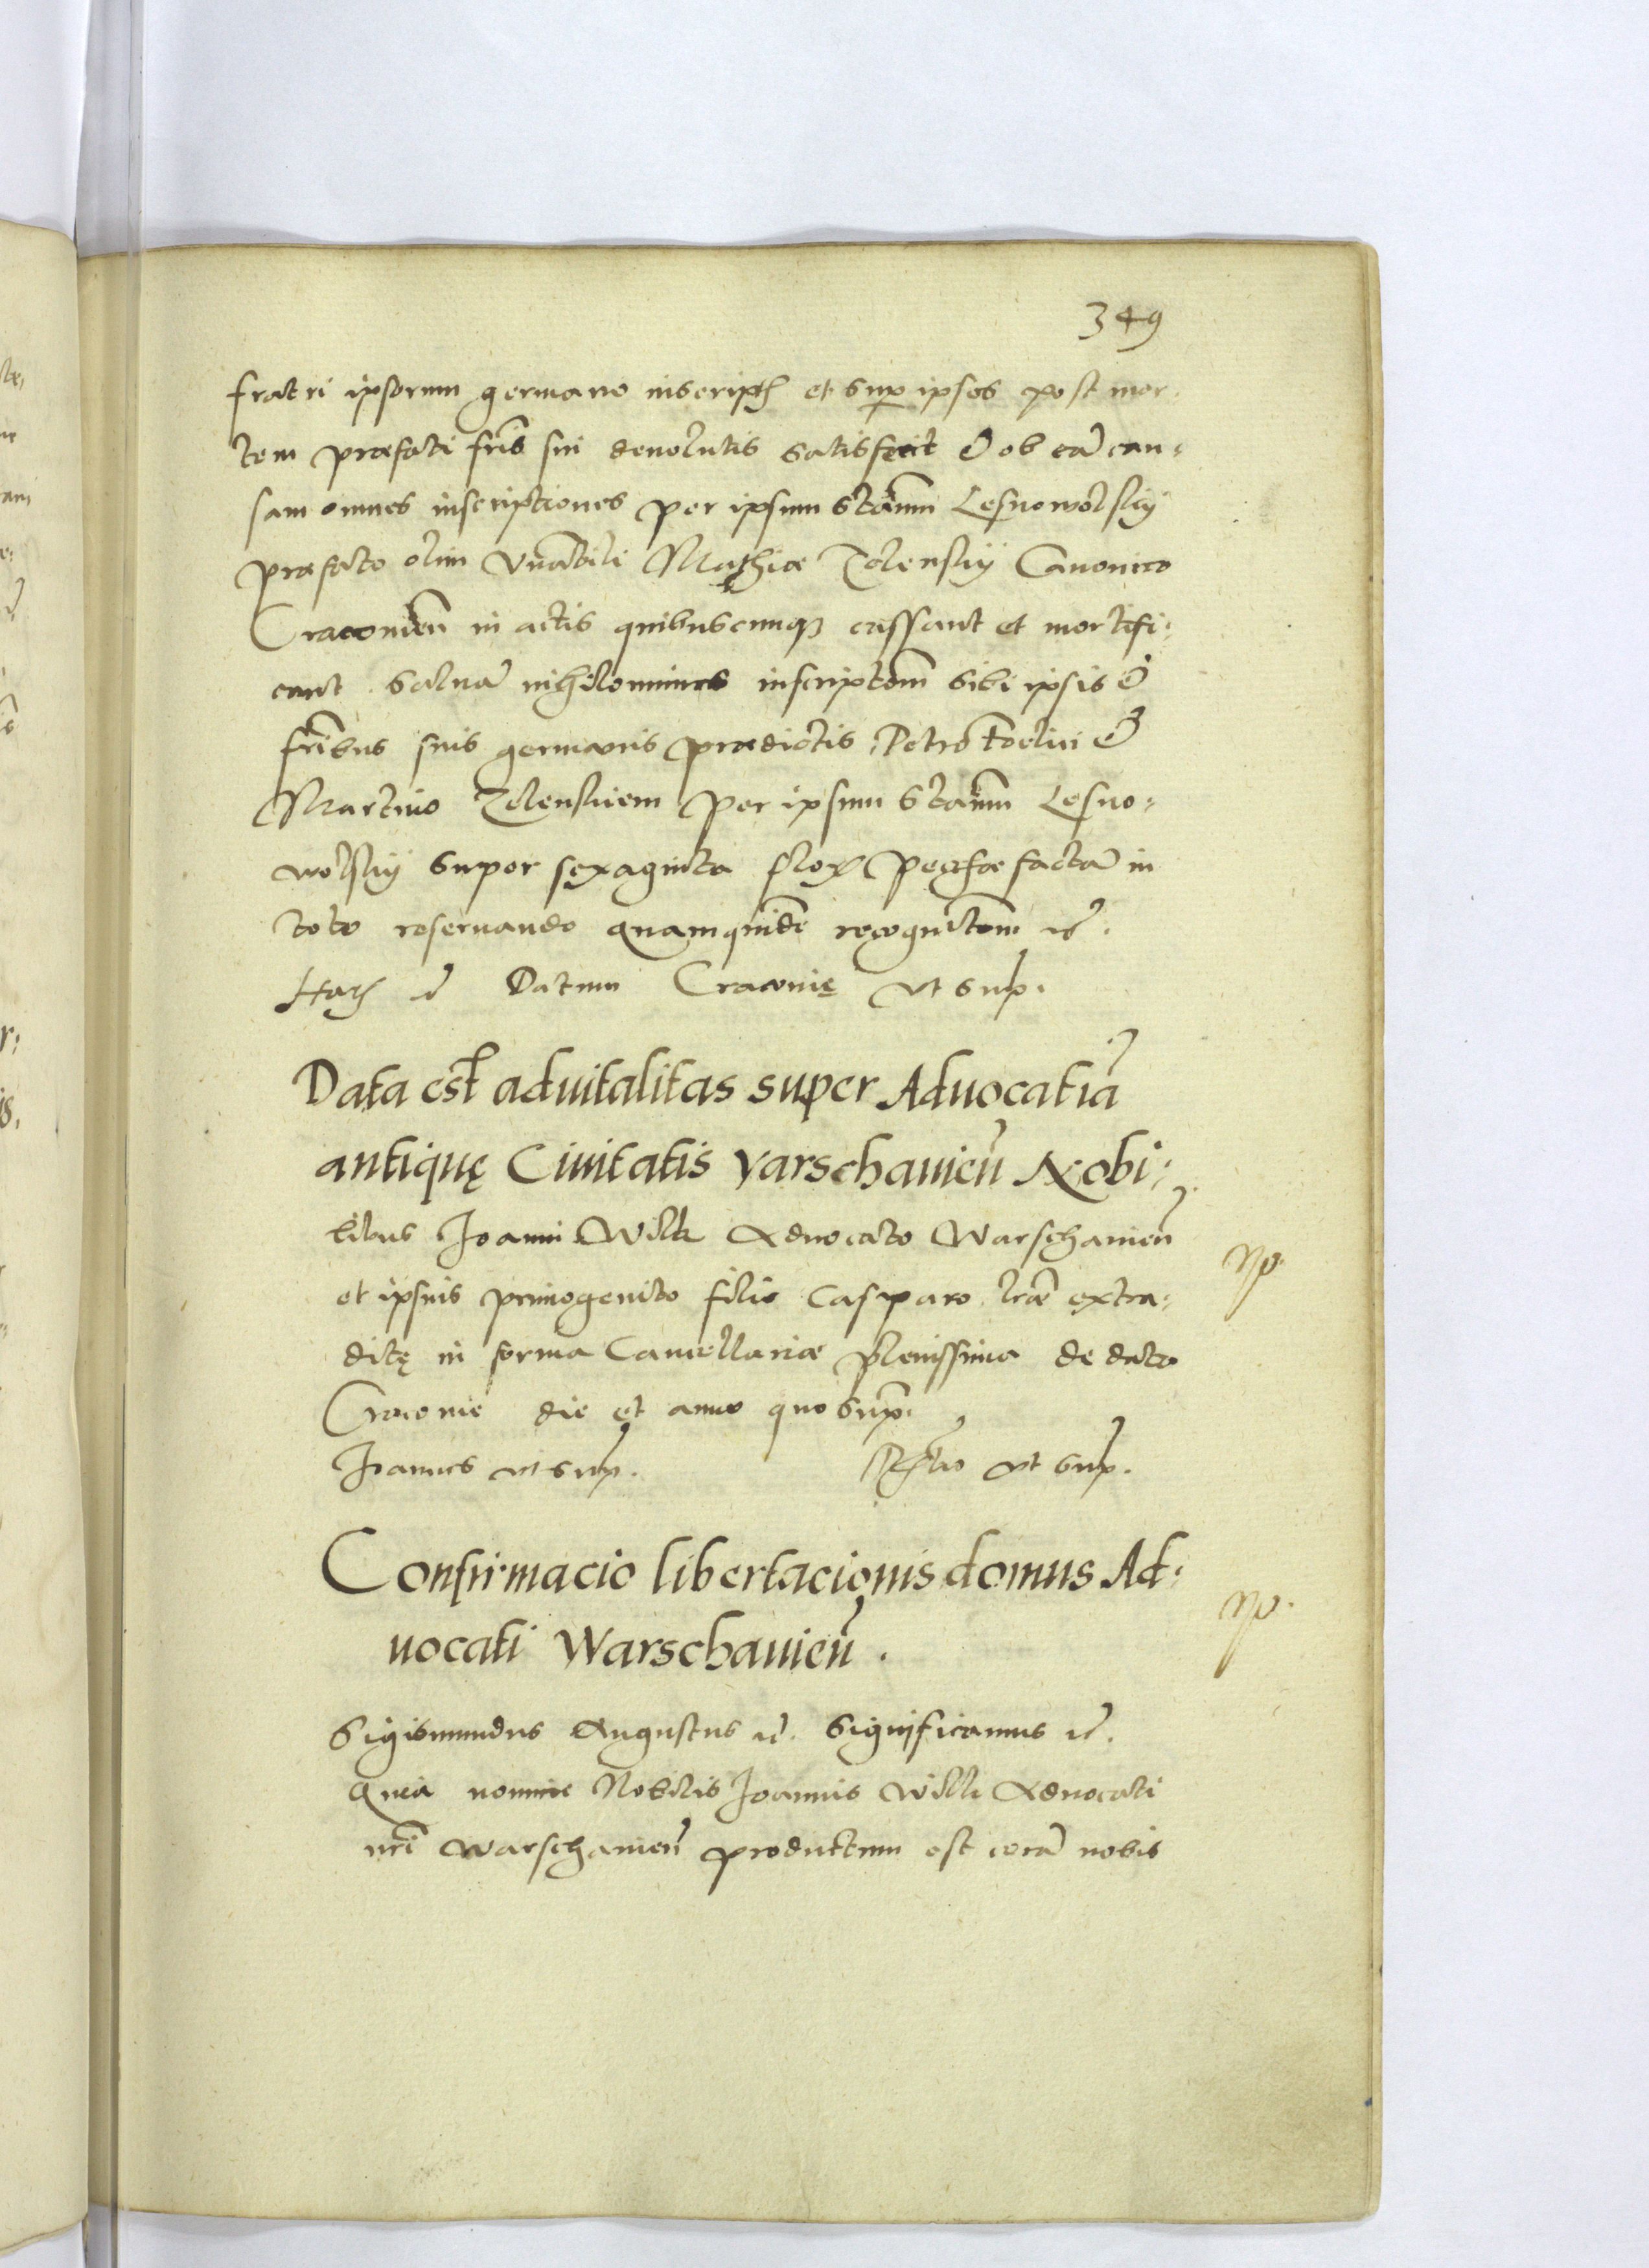 349
fratri ipsorum germano inscript et sup ipsos post mor-
tem præfati fris sui deuolutis satisfecit & ob eã cau-
sam omnes inscriptiones per ipsum Stanm Lesnowolskij
præfato olim Vnabili Mathiæ Zelenskij Canonico
Cracouien in actis quibuscunq cassant et mortifi-
cant saluã nihilominus inscriptõm sibi ipsis &
fribus suis germanis prædictis Petro &
Martino Zelenskiem per ipsum Stanm Lesno-
wolskij super sexaginta flor factã in
toto reseruando quamquidẽ recognitõm etc.
Har etc Datum Cracouię vt sup.
Data est aduitalitas super Aduocatiã
antiquę Ciuitatis Varschauien Nobi-
libus Joanni Wilk Aduocato Warschauien
et ipsius primogenito filio Casparo træ extra-
ditę in forma Cancellariæ plenissima de dato
Cracouie die et anno quo sup.
Joannes vt sup. vt sup.
Confirmacio libertacionis domus Ad-
uocati Warschauien.
Sigismundus Augustus etc. Significamus etc.
Quia nomine Nobilis Joannis Wilk Aduocati
nri Warschauien productum est corã nobis